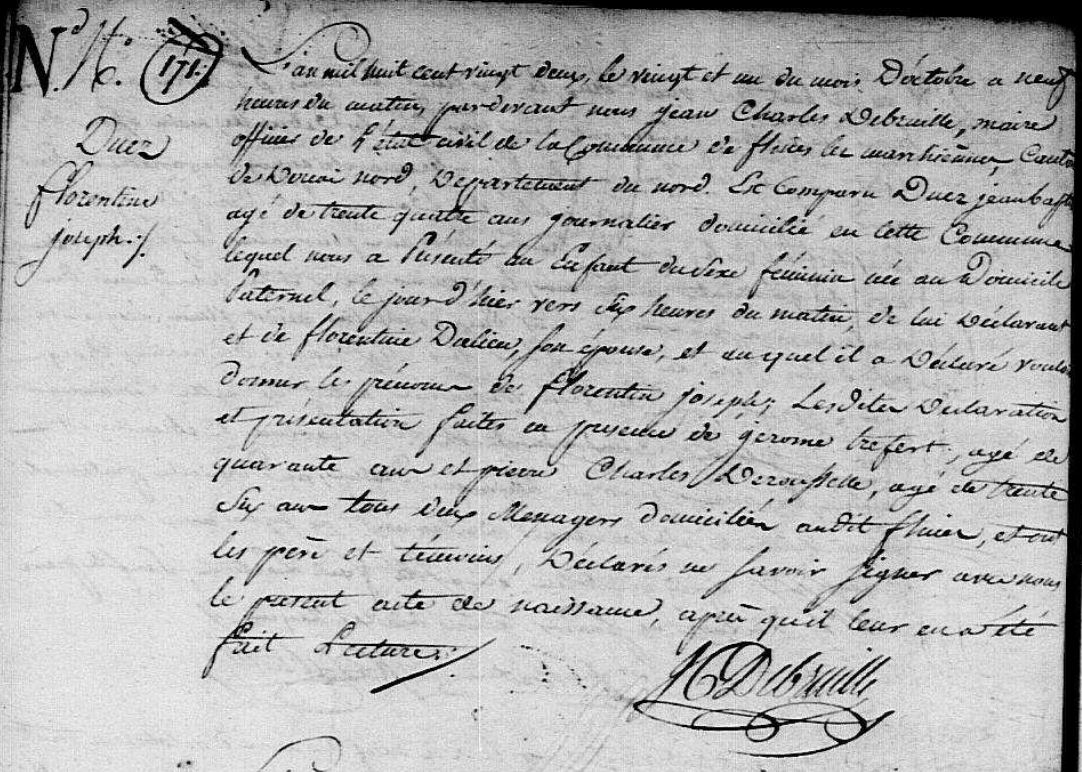 N.º N.º 171.
Duez
florentine
joseph :/
L'an mil huit cent vingt deux, le vingt et un du mois D'octobre a neuf
heures du matin, pardevant nous jean Charles Debraille, maire
officier de L'état civil de la Commune de flines les marchiennes, Canton
de Douai nord, Département du nord. Est Comparu Duez jean bapte
agé de trente quatre ans journalier domicilié en cette Commune
lequel nous a Présenté un Enfant du Sexe féminin née au Domicile
Paternel, le jour d'hier vers Six heures du matin, de lui Déclarant
et de florentine Delieu, son épouse, et auquel il a Déclaré vouloir
donner les prénoms de florentin joseph; Lesdites Déclaration
et présentation faites en presence de jerome trefert, agé de
quarante ans et pierre Charles Derousselle, agé de trente
Six ans tous deux Menagers domiciliés audit flines, et ont
les père et témoins, Déclarés ne savoir Signer avec nous
le present acte de naissance, après qu'il leur en a été
fait Lecture :/
JC Debraille